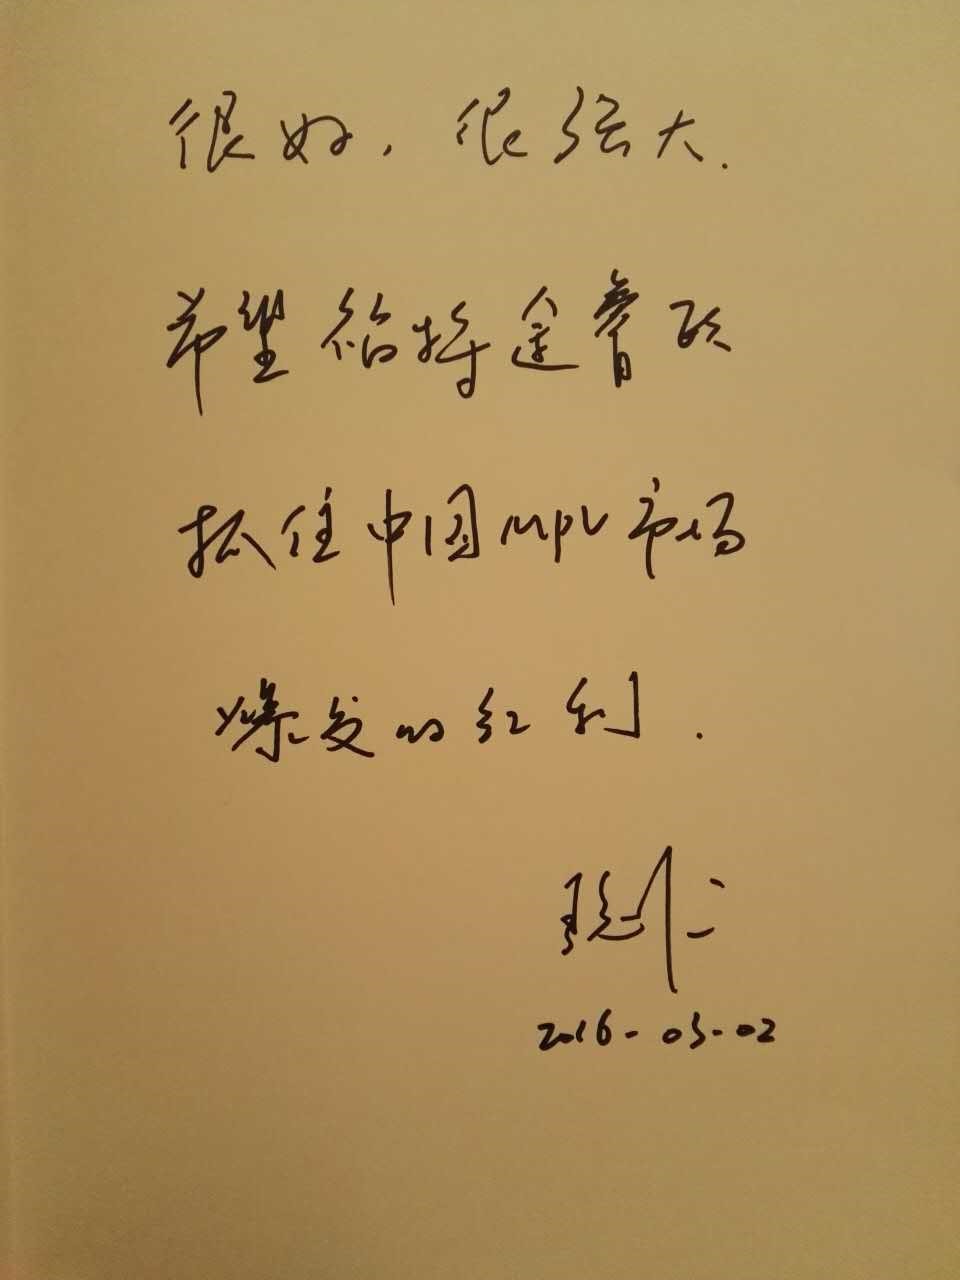 很好，很强大.
希望铂特途睿欧
抓住中国MPV市场
爆发的红利.
2016-03-02